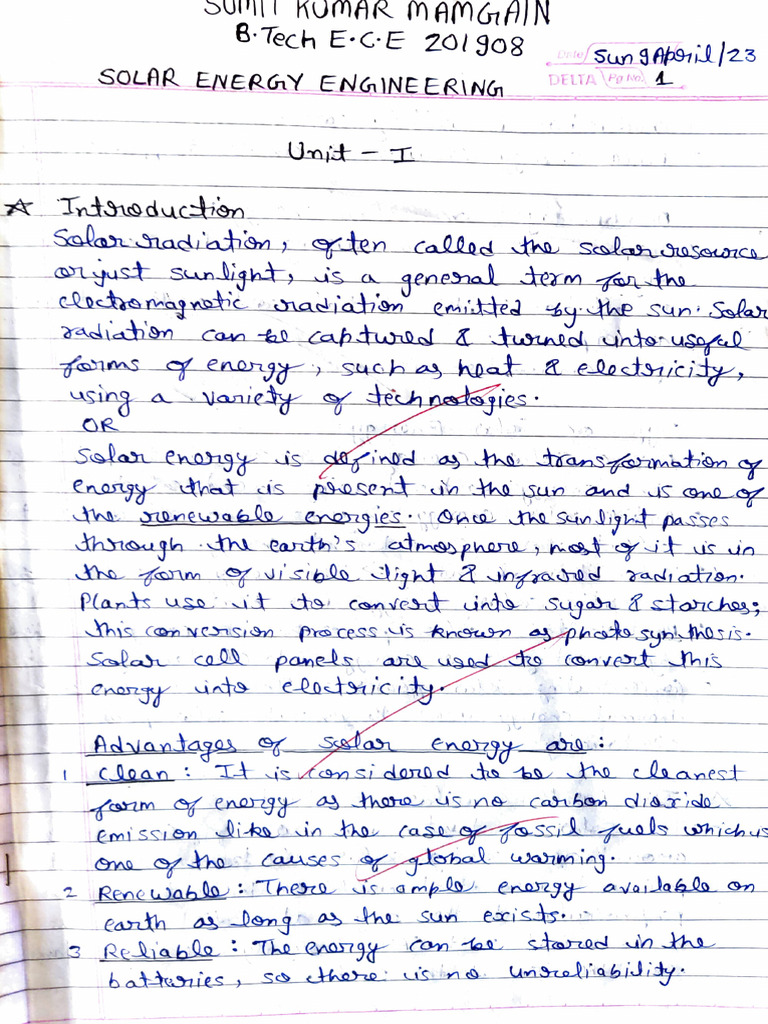 SUMIT KUMAR MAMGAIN
B.Tech E.C.E 201908
Date Sun 9 April/23
DELTA Pg No. 1
SOLAR ENERGY ENGINEERING
Unit - I
☆ Introduction
Solar radiation, often called the solar resource
or just sunlight, is a general term for the
electromagnetic radiation emitted by the sun. Solar
radiation can be captured & turned into useful
forms of energy, such as heat & electricity,
using a variety of technologies.
OR
Solar energy is defined as the transformation of
energy that is present in the sun and is one of
the renewable energies. Once the sunlight passes
through the earth's atmosphere, most of it is in
the form of visible light & infrared radiation.
Plants use it to convert into sugar & starches;
this conversion process is known as photosynthesis.
Solar cell panels are used to convert this
energy into electricity.
Advantages of solar energy are:
1 Clean: It is considered to be the cleanest
form of energy as there is no carbon dioxide
emission like in the case of fossil fuels which is
one of the causes of global warming.
2 Renewable: There is ample energy available on
earth as long as the sun exists.
3 Reliable: The energy can be stored in the
batteries, so there is no unreliability.